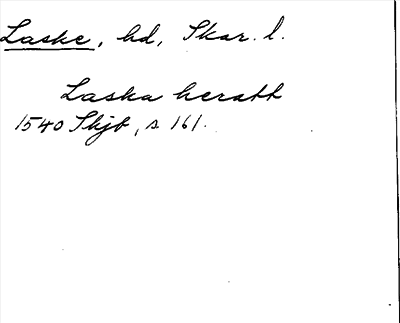 Laske, hd, Skar. l.
Laska heratt
1540 Skjb, s 161.